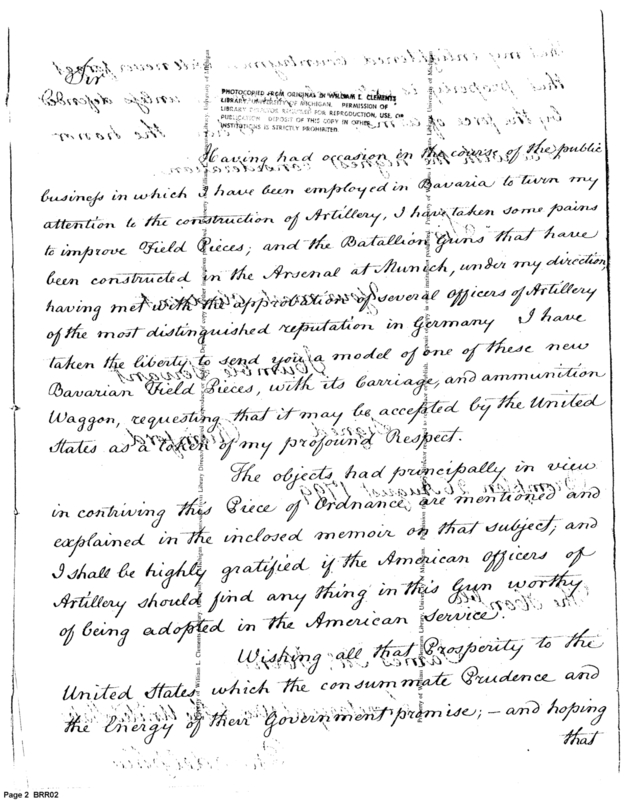 Sir
PHOTOCOPIED FROM ORIGINAL IN WILLIAM L. CLEMENTS
LIBRARY, UNIVERSITY OF MICHIGAN. PERMISSION OF
LIBRARY DIRECTOR REQUIRED FOR REPRODUCTION, USE, OR
PUBLICATION. DEPOSIT OF THIS COPY IN OTHER
INSTITUTIONS IS STRICTLY PROHIBITED.
Having had occasion in the course of the public
business in which I have been employed in Bavaria to turn my
attention to the construction of Artillery, I have taken some pains
to improve Field Pieces; and the Batallion Guns that have
been constructed in the Arsenal at Munich, under my direction,
having met with the approbation of several officers of Artillery
of the most distinguished reputation in Germany I have
taken the liberty to send you a model of one of these new
Bavarian Field Pieces, with its Carriage, and ammunition
Waggon, requesting that it may be accepted by the United
States as a token of my profound Respect.
The objects had principally in view
in contriving this Piece of Ordnance are mentioned and
explained in the inclosed memoir on that subject; and
I shall be highly gratified if the American officers of
Artillery should find any thing in this Gun worthy
of being adopted in the American service.
Wishing all that Prosperity to the
United States which the consummate Prudence and
the Energy of their Government promise; – and hoping
that
Page 2 BRR02